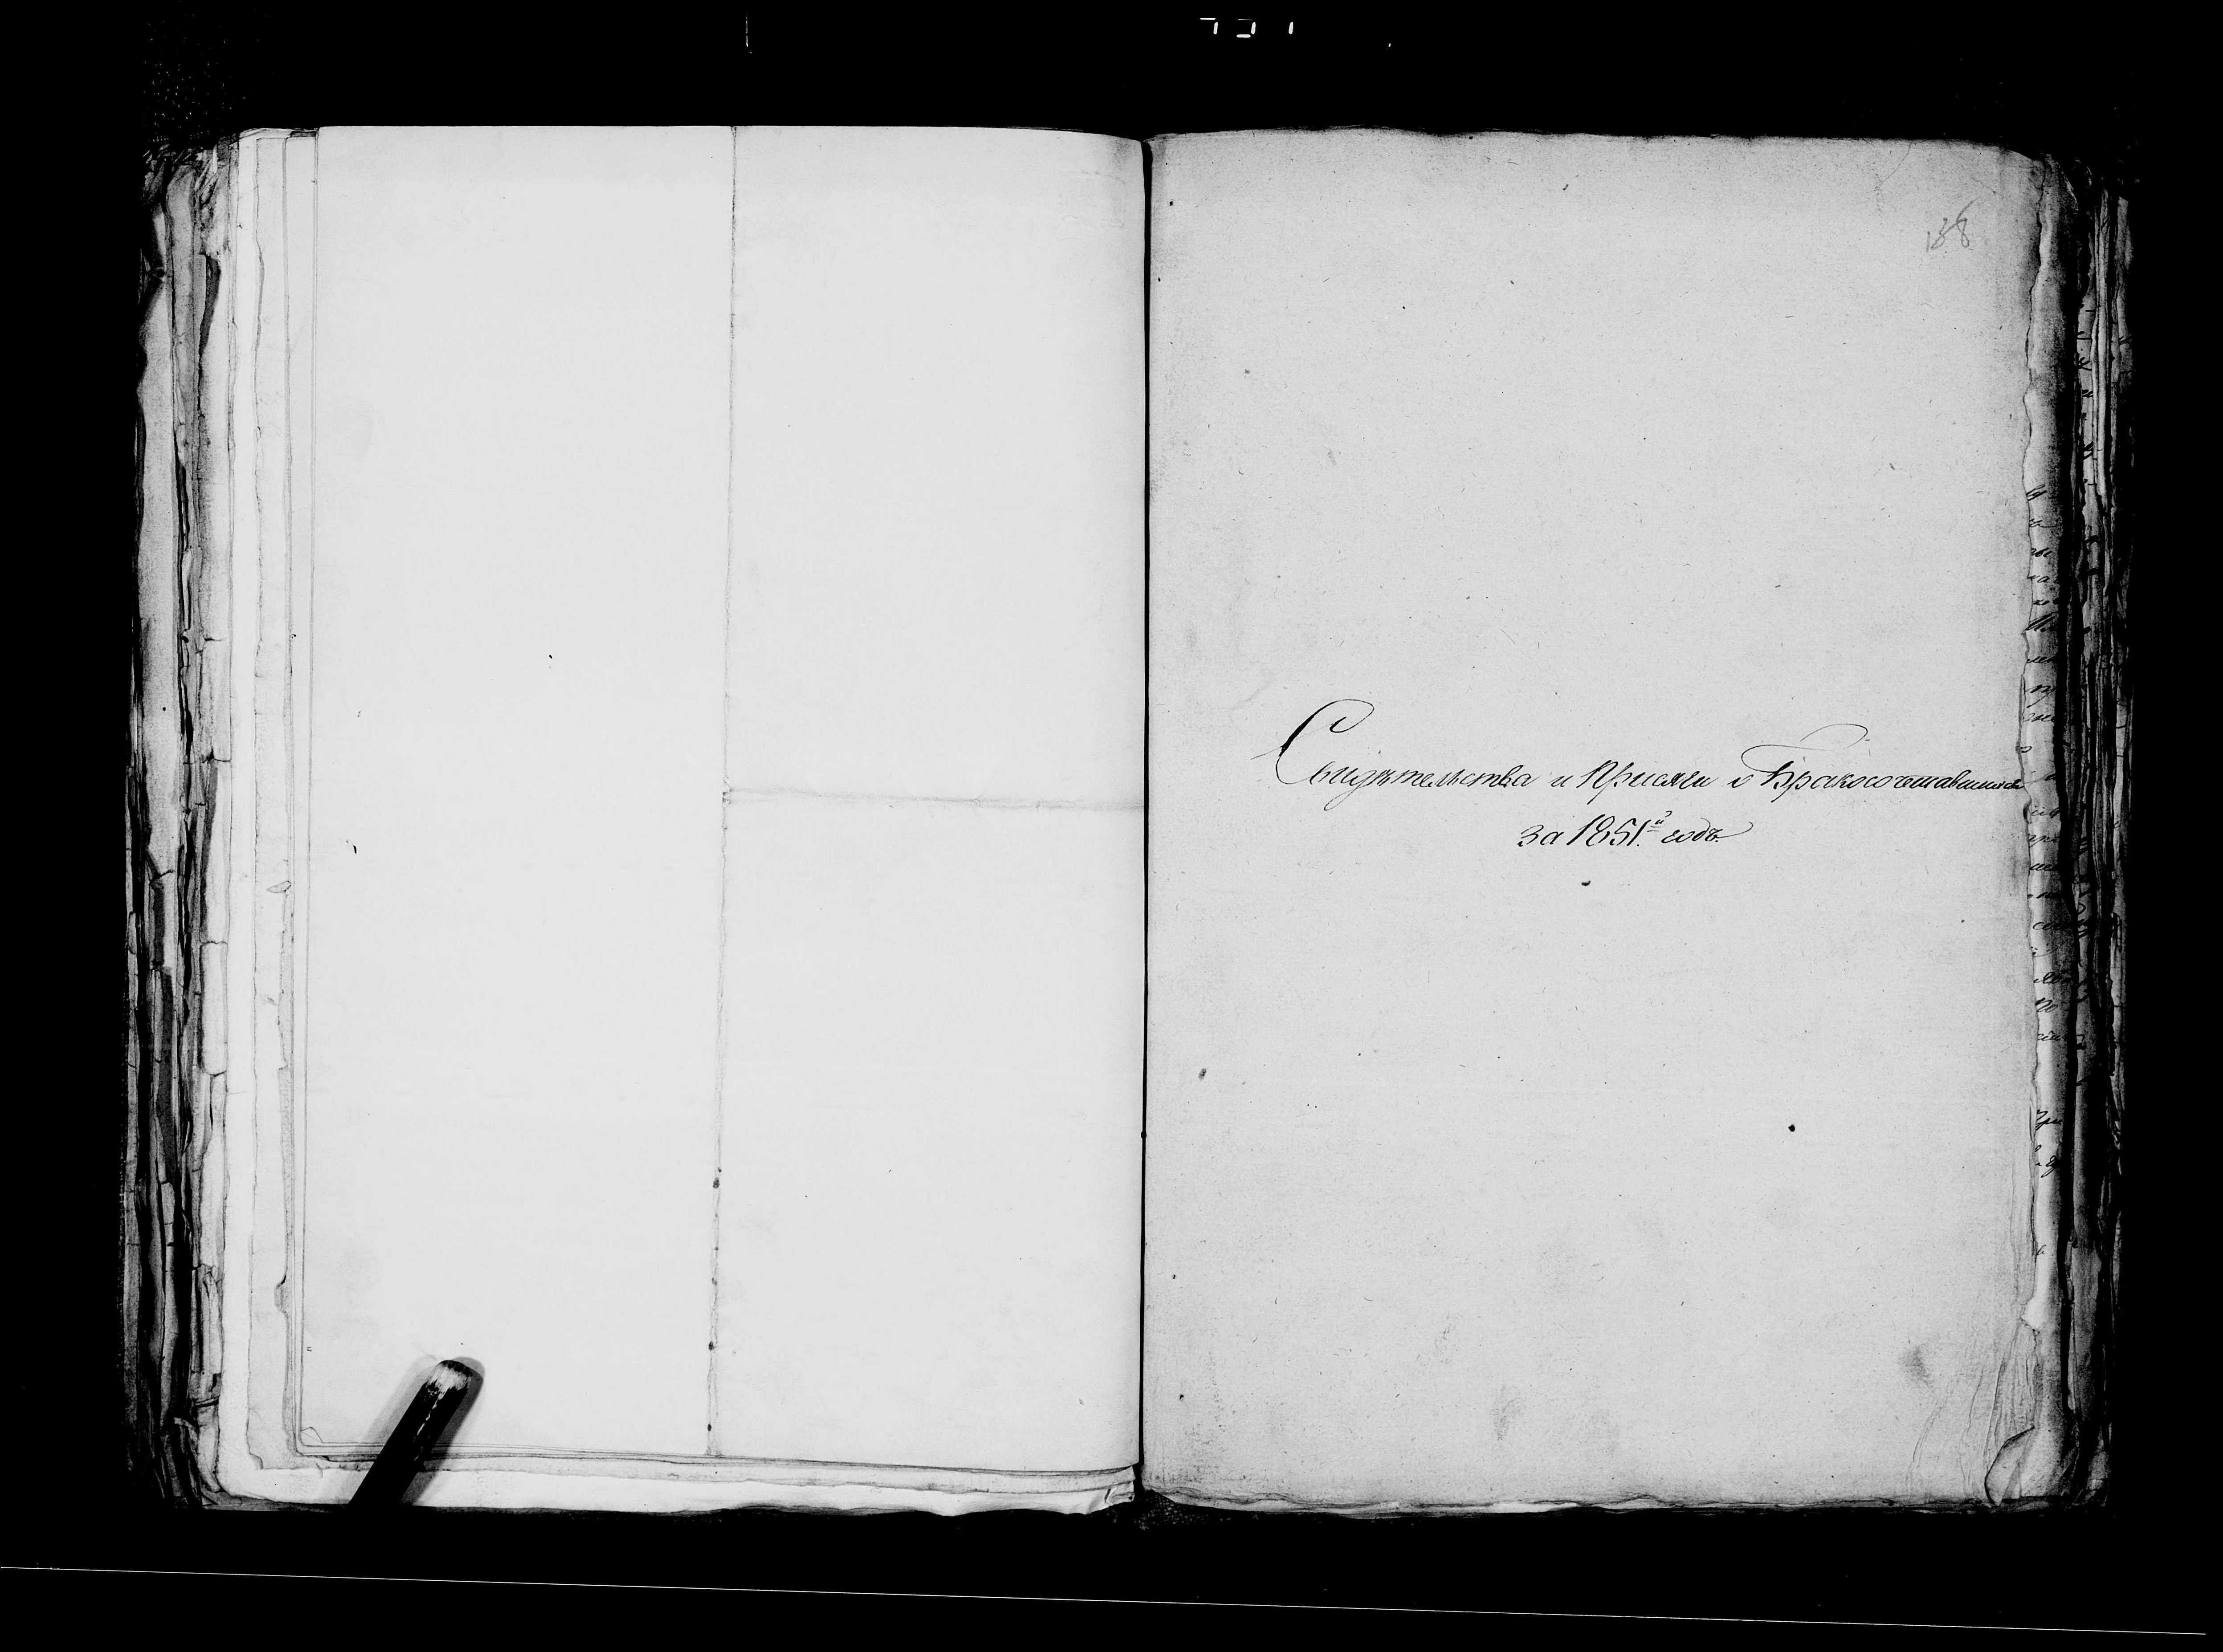 188
Свидѣтельства и Присяги о Бракосочетавшихся
за 1851й годъ.